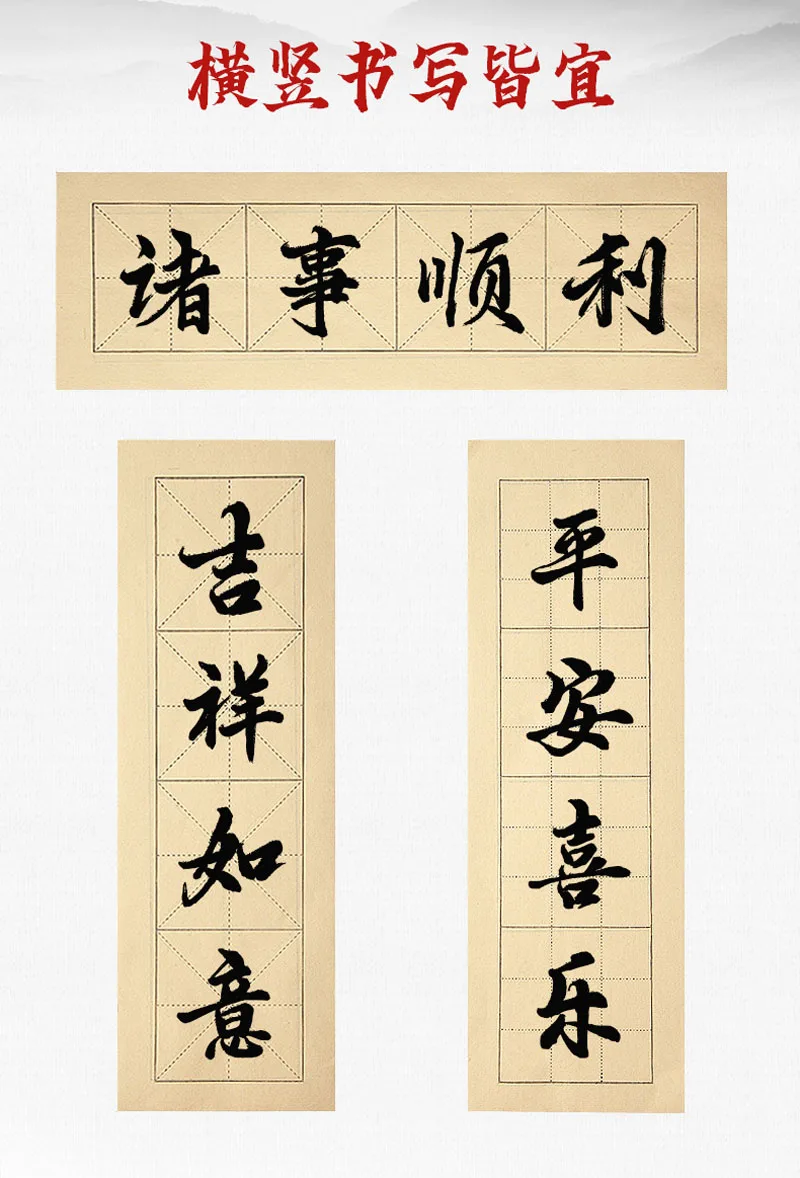 横竖书写皆宜
诸事顺利
吉祥如意
平安喜乐